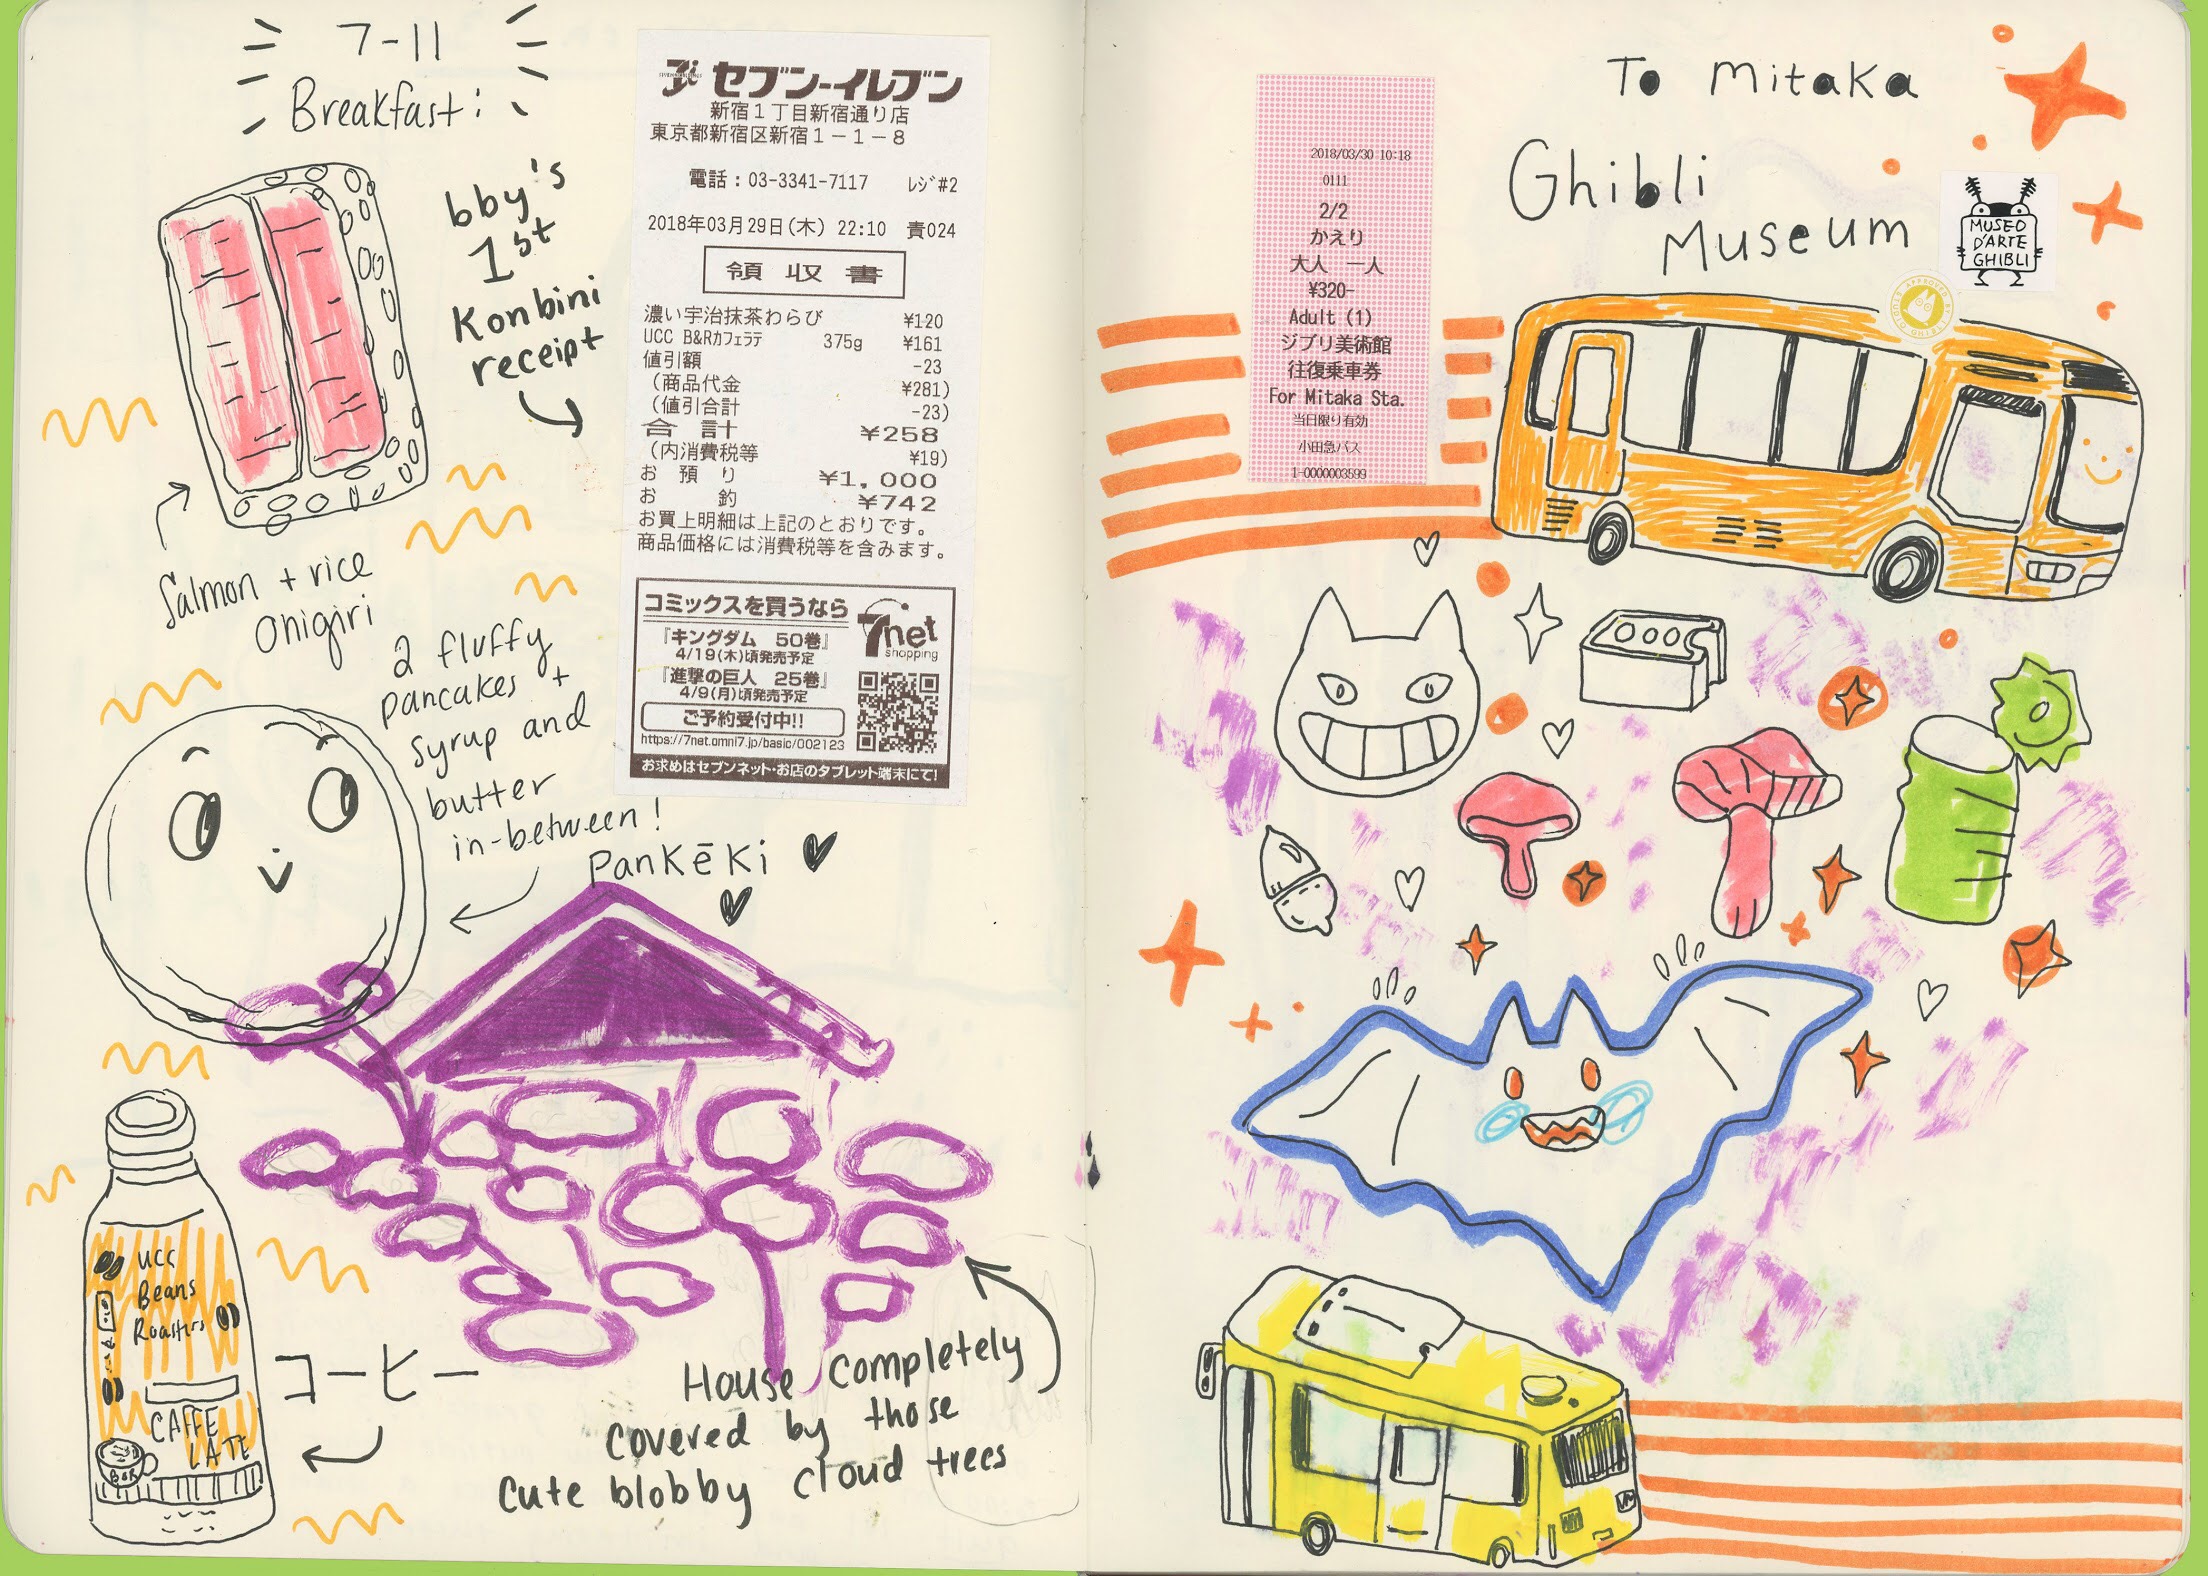 7-11
Breakfast:
bby's
1st
Konbini
receipt
Salmon + rice
onigiri
2 fluffy
pancakes +
syrup and
butter
in-between!
Pankēki
UCC
Beans
Roasters
CAFFE
LATE
B&R
コーヒー
House completely
covered by those
cute blobby cloud trees
セブン-イレブン
新宿1丁目新宿通り店
東京都新宿区新宿1-1-8
電話:03-3341-7117 レジ#2
2018年03月29日(木) 22:10 責024
領収書
濃い宇治抹茶わらび ¥120
UCC B&Rカフェラテ 375g ¥161
値引額 -23
(商品代金 ¥281)
(値引合計 -23)
合 計 ¥258
(内消費税等 ¥19)
お 預 り ¥1,000
お 釣 ¥742
お買上明細は上記のとおりです。
商品価格には消費税等を含みます。
コミックスを買うなら
7net
shopping
『キングダム 50巻』
4/19(木)頃発売予定
『進撃の巨人 25巻』
4/9(月)頃発売予定
ご予約受付中!!
https://7net.omni7.jp/basic/002123
お求めはセブンネット・お店のタブレット端末にて!
To Mitaka
Ghibli
Museum
MUSEO
D'ARTE
GHIBLI
2018/03/30 10:18
0111
2/2
かえり
大人 一人
¥320-
Adult (1)
ジブリ美術館
往復乗車券
For Mitaka Sta.
当日限り有効
小田急バス
1-0000003599